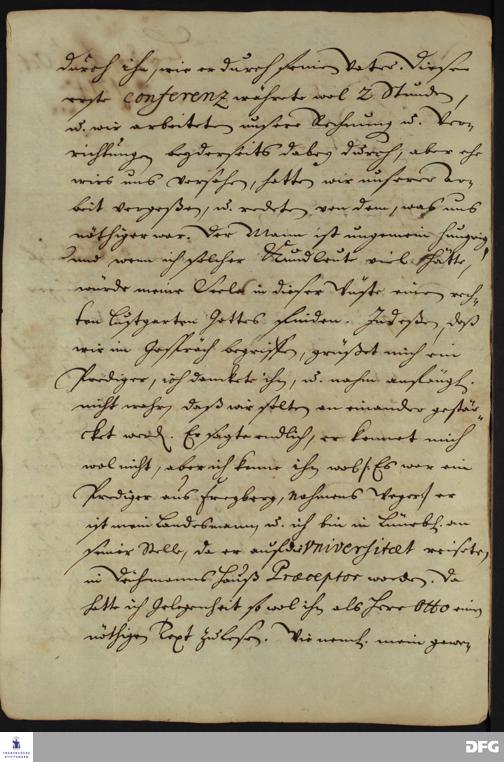 durch ihn, wie er durch seinen Vater. Diese
erste Conferenz währete wol 2 Stunden,
u. wir arbeiteten unsere Rechnung u. Ver-
richtungen beyderseits dabey durch, aber ehe
wirs uns versehen, hatten wir unserer Ar-
beit vergeßen, u. redeten von dem, was uns
nöthiger war. Der Mann ist ungemein hungrig
und wenn ich solcher Kundleute viel hätte,
würde meine Seele in dieser Wüste einen rech-
ten Lustgarten Gottes finden. Indeßen, daß
wir im Gespräch begriffen, grüßet mich ein
Prediger, ich dankete ihm, u. nahm anfängl.
nicht wahr, daß wir solten an einander gestär-
cket werd. Er sagte endlich, er kennet mich
wol nicht, aber ich kenne ihn wol. Es war ein
Prediger aus Freyberg, Nahmens er
ist mein Landesmann, u. ich bin in Lüneb. an
seiner Stelle, da er auf die Universitæt reisete,
in Hauß Præceptor worden. Da
hatte ich Gelegenheit so wol ihm als Herr Otto einen
nöthigen Text zu lesen. Wie neml. mein gewe-
FRANCKESCHE
STIFTUNGEN
DFG